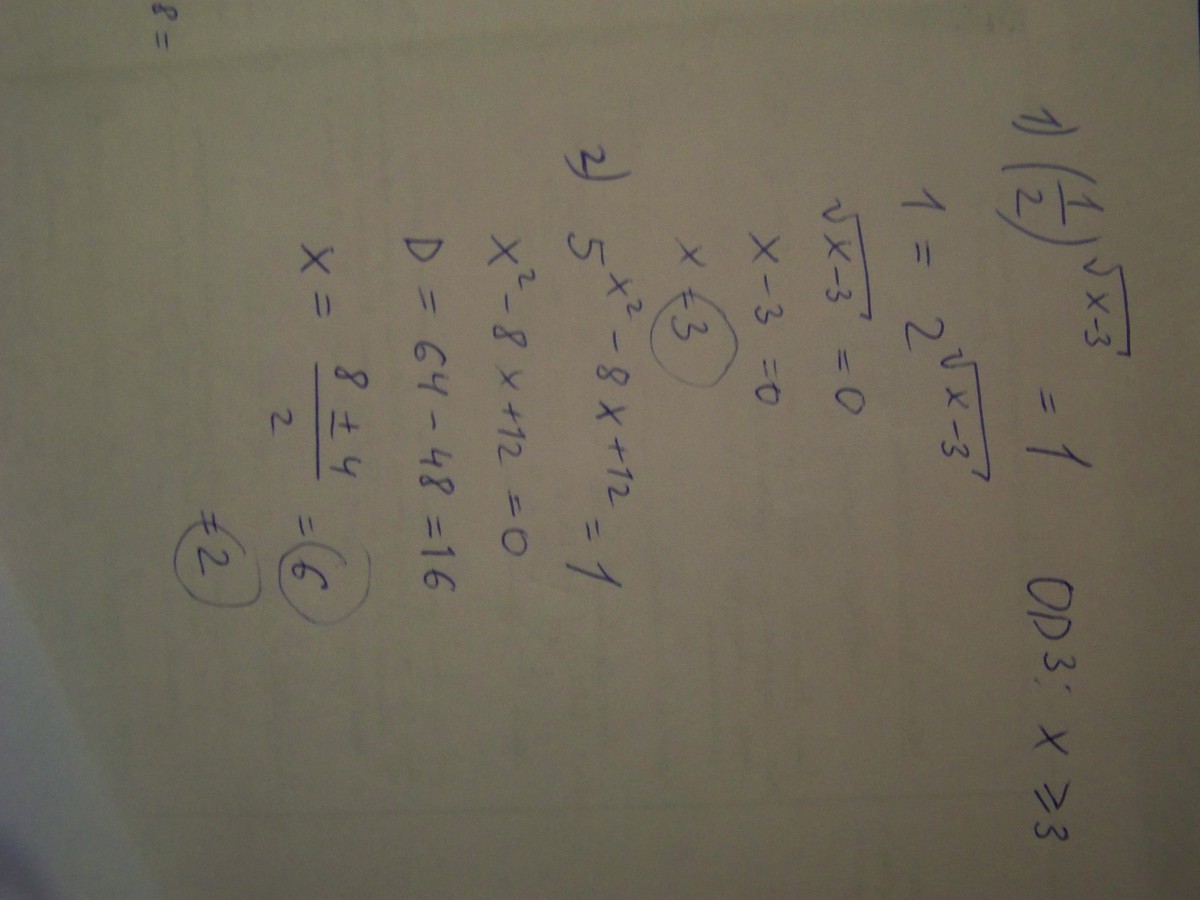 1) (1/2)^√(x-3) = 1 ОДЗ: x ≥ 3
1 = 2^√(x-3)
√(x-3) = 0
x - 3 = 0
x = 3
2) 5^(x² - 8x + 12) = 1
x² - 8x + 12 = 0
D = 64 - 48 = 16
x = (8 ± 4)/2 = 6
= 2
8 =